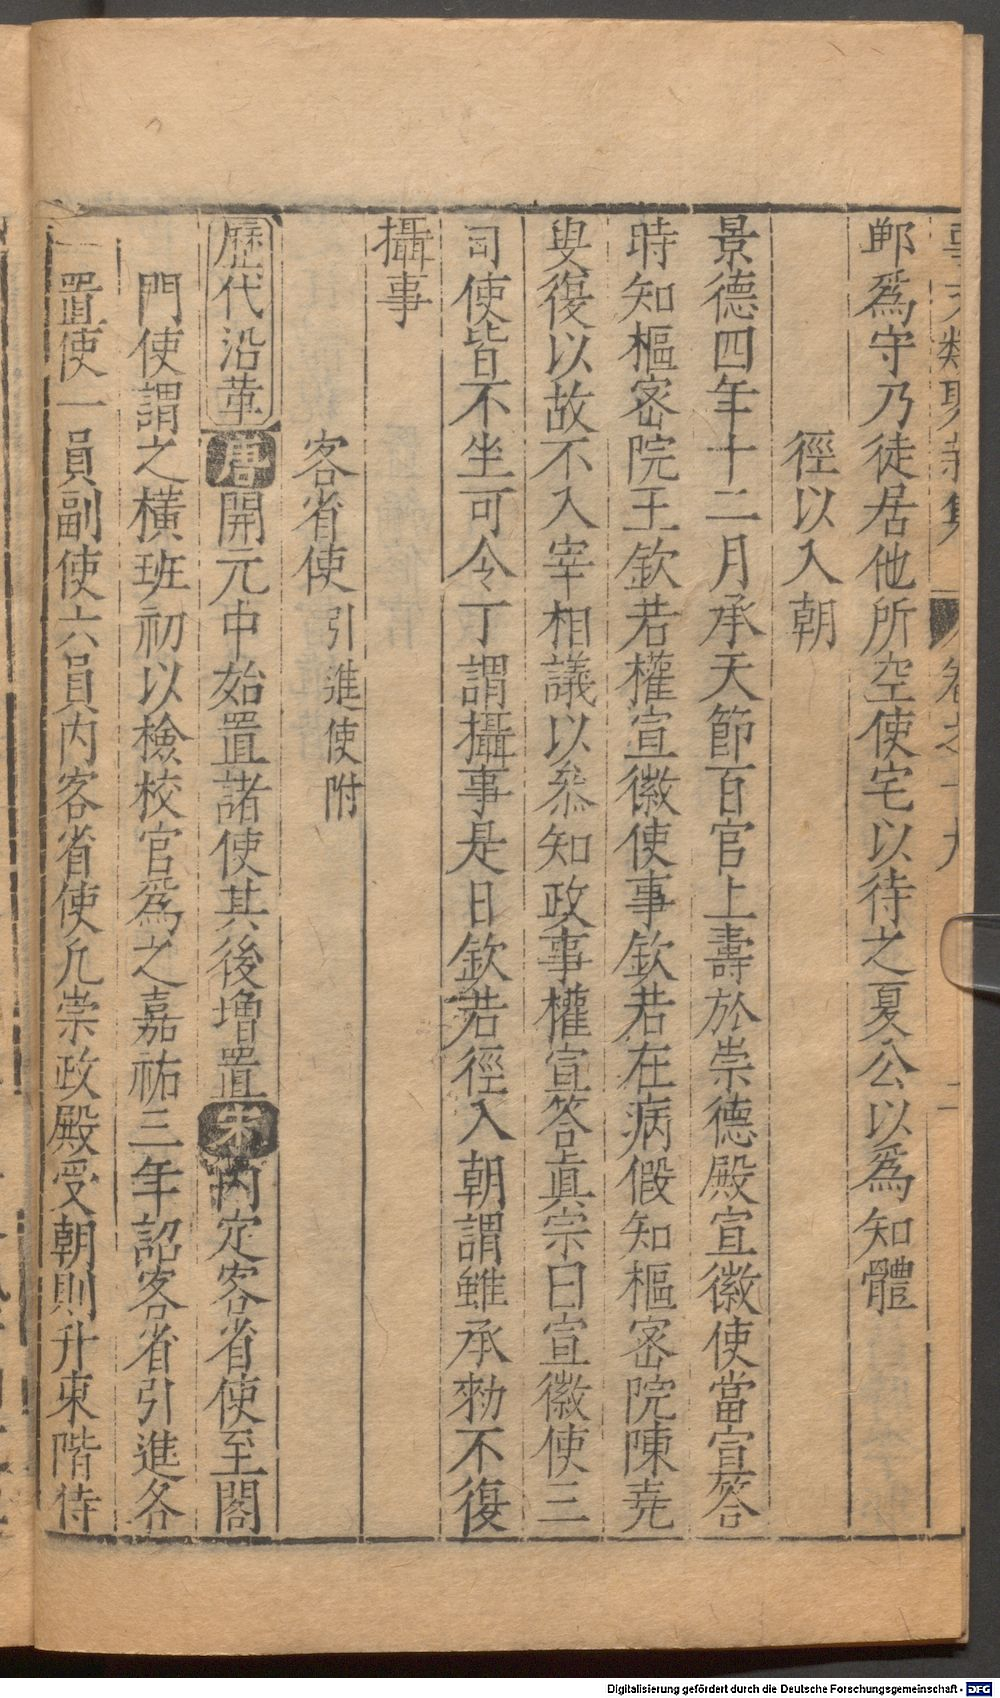 事文類聚新集 卷之十九 二
鄆爲守乃徒居他所空使宅以待之夏公以爲知體
徑以入朝
景德四年十二月承天節百官上壽於崇德殿宣徽使當宣答
時知樞密院王欽若權宣徽使事欽若在病假知樞密院陳堯
叟復以故不入宰相議以叅知政事權宣答眞宗曰宣徽使三
司使皆不坐可令丁謂攝事是日欽若徑入朝謂雖承勑不復
攝事
客省使 引進使附
歷代沿革 唐 開元中始置諸使其後增置 宋 內定客省使至閣
門使謂之橫班初以檢校官爲之嘉祐三年詔客省引進各
一置使一員副使六員內客省使凡崇政殿受朝則升東階侍
Digitalisierung gefördert durch die Deutsche Forschungsgemeinschaft - DFG